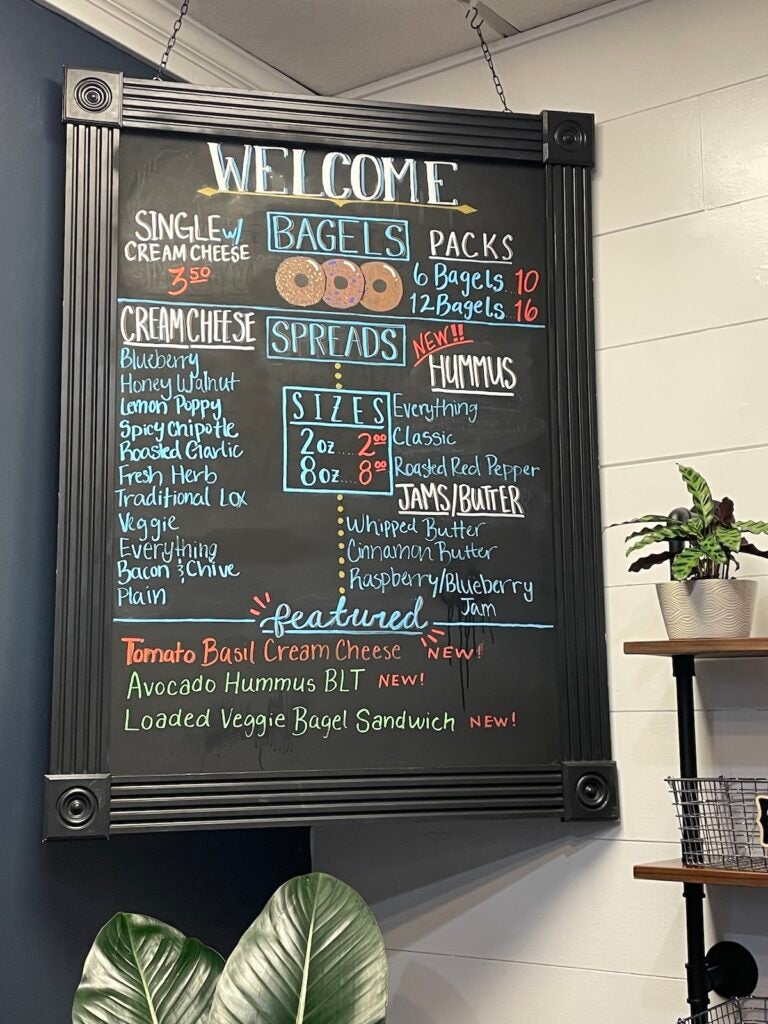 WELCOME
SINGLE w/
CREAM CHEESE
3.50
BAGELS
PACKS
6 Bagels.. 10
12 Bagels... 16
CREAM CHEESE
Blueberry
Honey Walnut
Lemon Poppy
Spicy Chipotle
Roasted Garlic
Fresh Herb
Traditional Lox
Veggie
Everything
Bacon & Chive
Plain
SPREADS
SIZES
2oz.... 2.00
8oz.... 8.00
NEW!!
HUMMUS
Everything
Classic
Roasted Red Pepper
JAMS/BUTTER
Whipped Butter
Cinnamon Butter
Raspberry/Blueberry
Jam
featured
Tomato Basil Cream Cheese NEW!
Avocado Hummus BLT NEW!
Loaded Veggie Bagel Sandwich NEW!